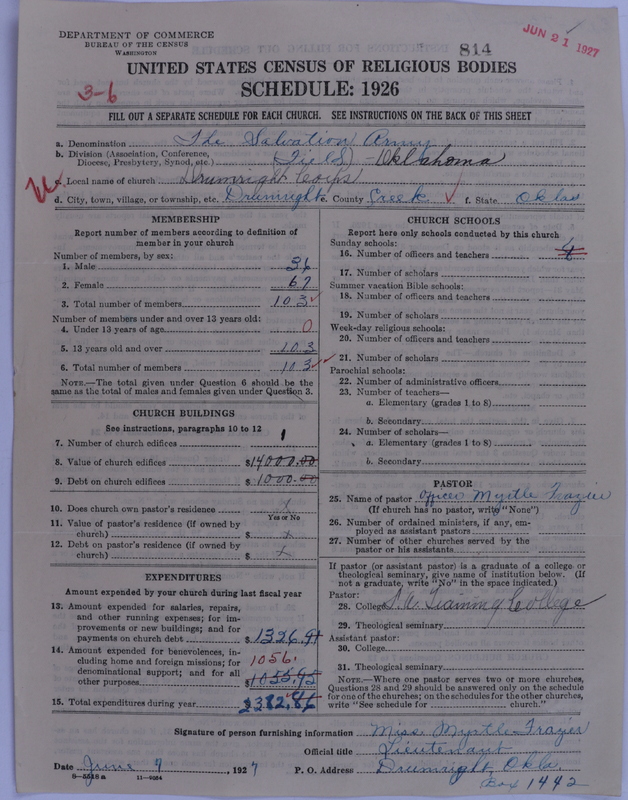 DEPARTMENT OF COMMERCE
BUREAU OF THE CENSUS
WASHINGTON
814
JUN 21 1927
UNITED STATES CENSUS OF RELIGIOUS BODIES
SCHEDULE: 1926
3-6
FILL OUT A SEPARATE SCHEDULE FOR EACH CHURCH. SEE INSTRUCTIONS ON THE BACK OF THIS SHEET
a. Denomination The Salvation Army
b. Division (Association, Conference, Diocese, Presbytery, Synod, etc.) (Field) - Oklahoma
c. Local name of church Drumright Corps
d. City, town, village, or township, etc. Drumright e. County Creek f. State Okla
MEMBERSHIP
Report number of members according to definition of
member in your church
Number of members, by sex:
1. Male 36
2. Female 67
3. Total number of members 103
Number of members under and over 13 years old:
4. Under 13 years of age 0
5. 13 years old and over 103
6. Total number of members 103
NOTE.—The total given under Question 6 should be the
same as the total of males and females given under Question 3.
CHURCH BUILDINGS
See instructions, paragraphs 10 to 12
7. Number of church edifices 1
8. Value of church edifices $14000.00
9. Debt on church edifices $1000.00
10. Does church own pastor's residence x
Yes or No
11. Value of pastor's residence (if owned by
church) $ x
12. Debt on pastor's residence (if owned by
church) $ x
EXPENDITURES
Amount expended by your church during last fiscal year
13. Amount expended for salaries, repairs,
and other running expenses; for im-
provements or new buildings; and for
payments on church debt $1326.91
14. Amount expended for benevolences, in-
cluding home and foreign missions; for
denominational support; and for all
other purposes 1056. $1055.95
15. Total expenditures during year $2382.86
CHURCH SCHOOLS
Report here only schools conducted by this church
Sunday schools:
16. Number of officers and teachers 4
17. Number of scholars
Summer vacation Bible schools:
18. Number of officers and teachers
19. Number of scholars
Week-day religious schools:
20. Number of officers and teachers
21. Number of scholars
Parochial schools:
22. Number of administrative officers
23. Number of teachers—
a. Elementary (grades 1 to 8)
b. Secondary
24. Number of scholars—
a. Elementary (grades 1 to 8)
b. Secondary
PASTOR
25. Name of pastor Officer Myrtle Frazier
(If church has no pastor, write "None")
26. Number of ordained ministers, if any, em-
ployed as assistant pastors
27. Number of other churches served by the
pastor or his assistants
If pastor (or assistant pastor) is a graduate of a college or
theological seminary, give name of institution below. (If
not a graduate, write "No" in the space indicated.)
Pastor:
28. College S.A. Training College
29. Theological seminary
Assistant pastor:
30. College
31. Theological seminary
NOTE.—Where one pastor serves two or more churches,
Questions 28 and 29 should be answered only on the schedule
for one of the churches; on the schedules for the other churches,
write "See schedule for church."
Signature of person furnishing information Miss. Myrtle Frazier
Official title Lieutenant
Date June 9, 1927 P. O. Address Drumright, Okla.
Box 1442
6—5518 a 11—9034